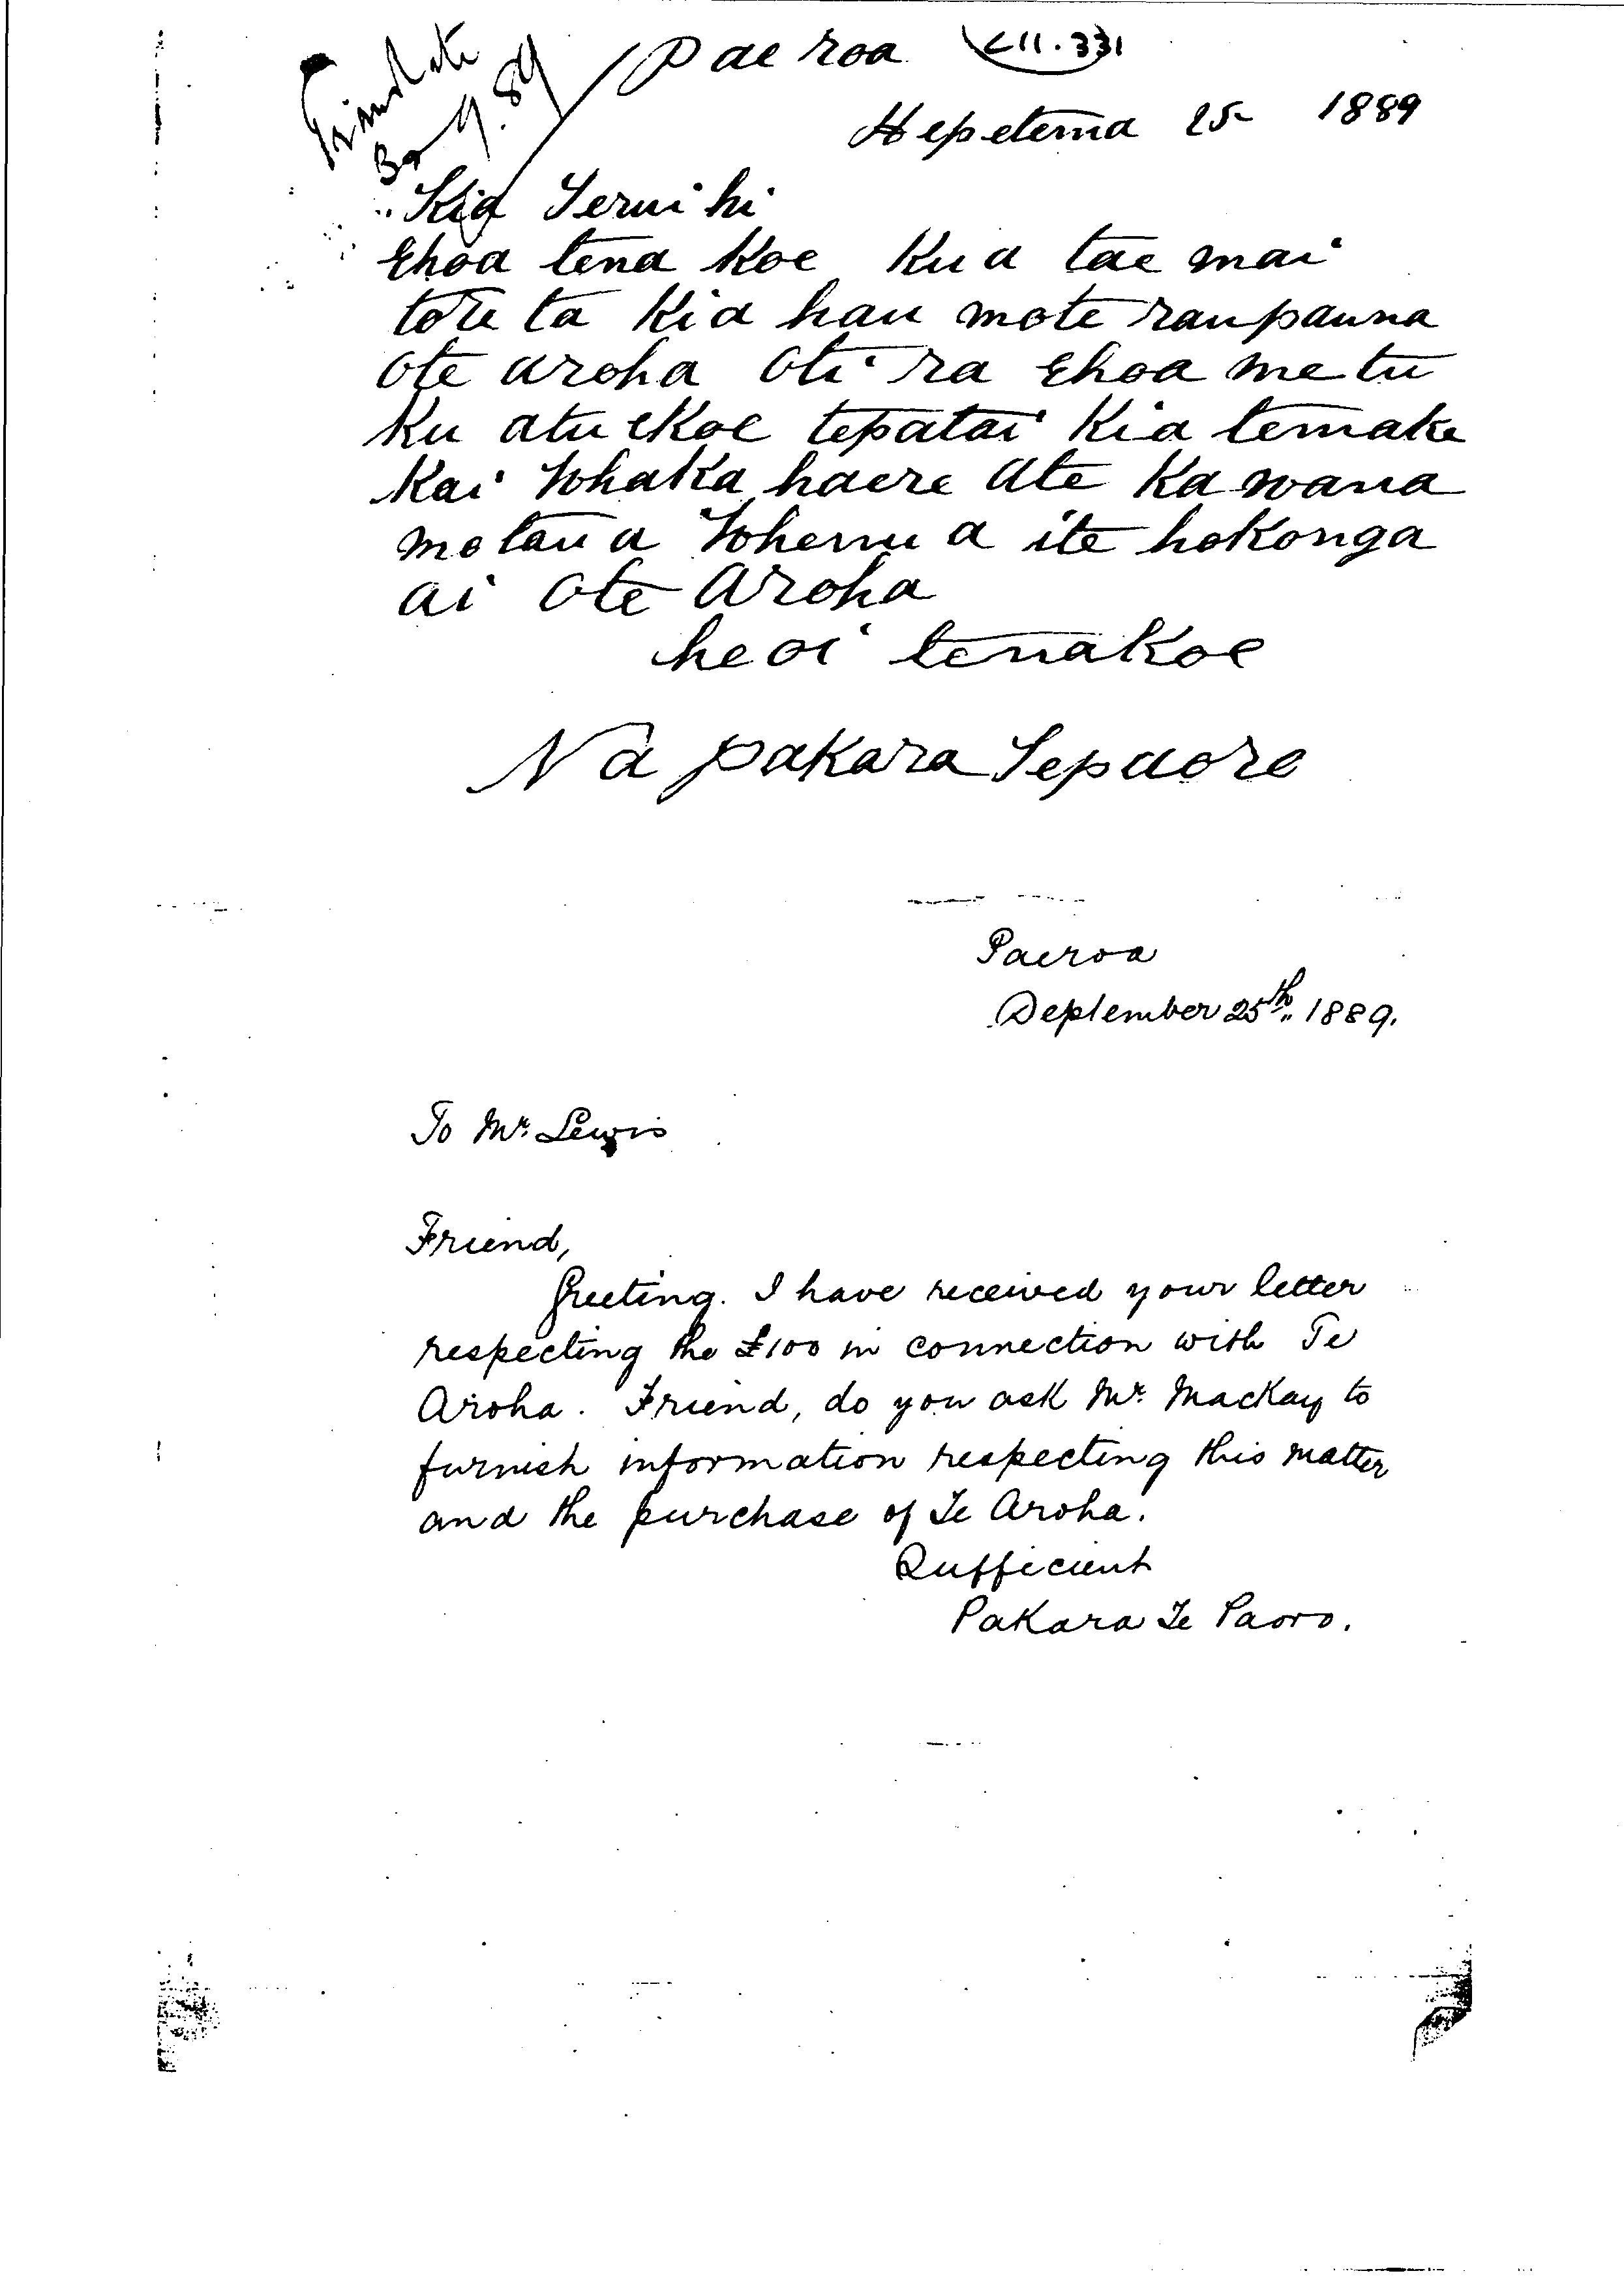 Translate
30.9.89
Paeroa L11.331
Hepetema 25 1889
Kia Teruihi
Ehoa tena koe kua tae mai
to reta kia hau mote raupauna
ote aroha oti ra Ehoa me tu
ku atu ekoe tepatai kia temake
kai whaka haere ate kawana
motaua whenua ite hokonga
ai ote Aroha
heoi tenakoe
Na pakara Tepaoro
Paeroa
September 25th. 1889.
To Mr. Lewis
Friend,
Greeting. I have received your letter
respecting the £100 in connection with Te
Aroha. Friend, do you ask Mr. Mackay to
furnish information respecting this matter
and the purchase of Te Aroha.
Sufficient
Pakara Te Paoro.